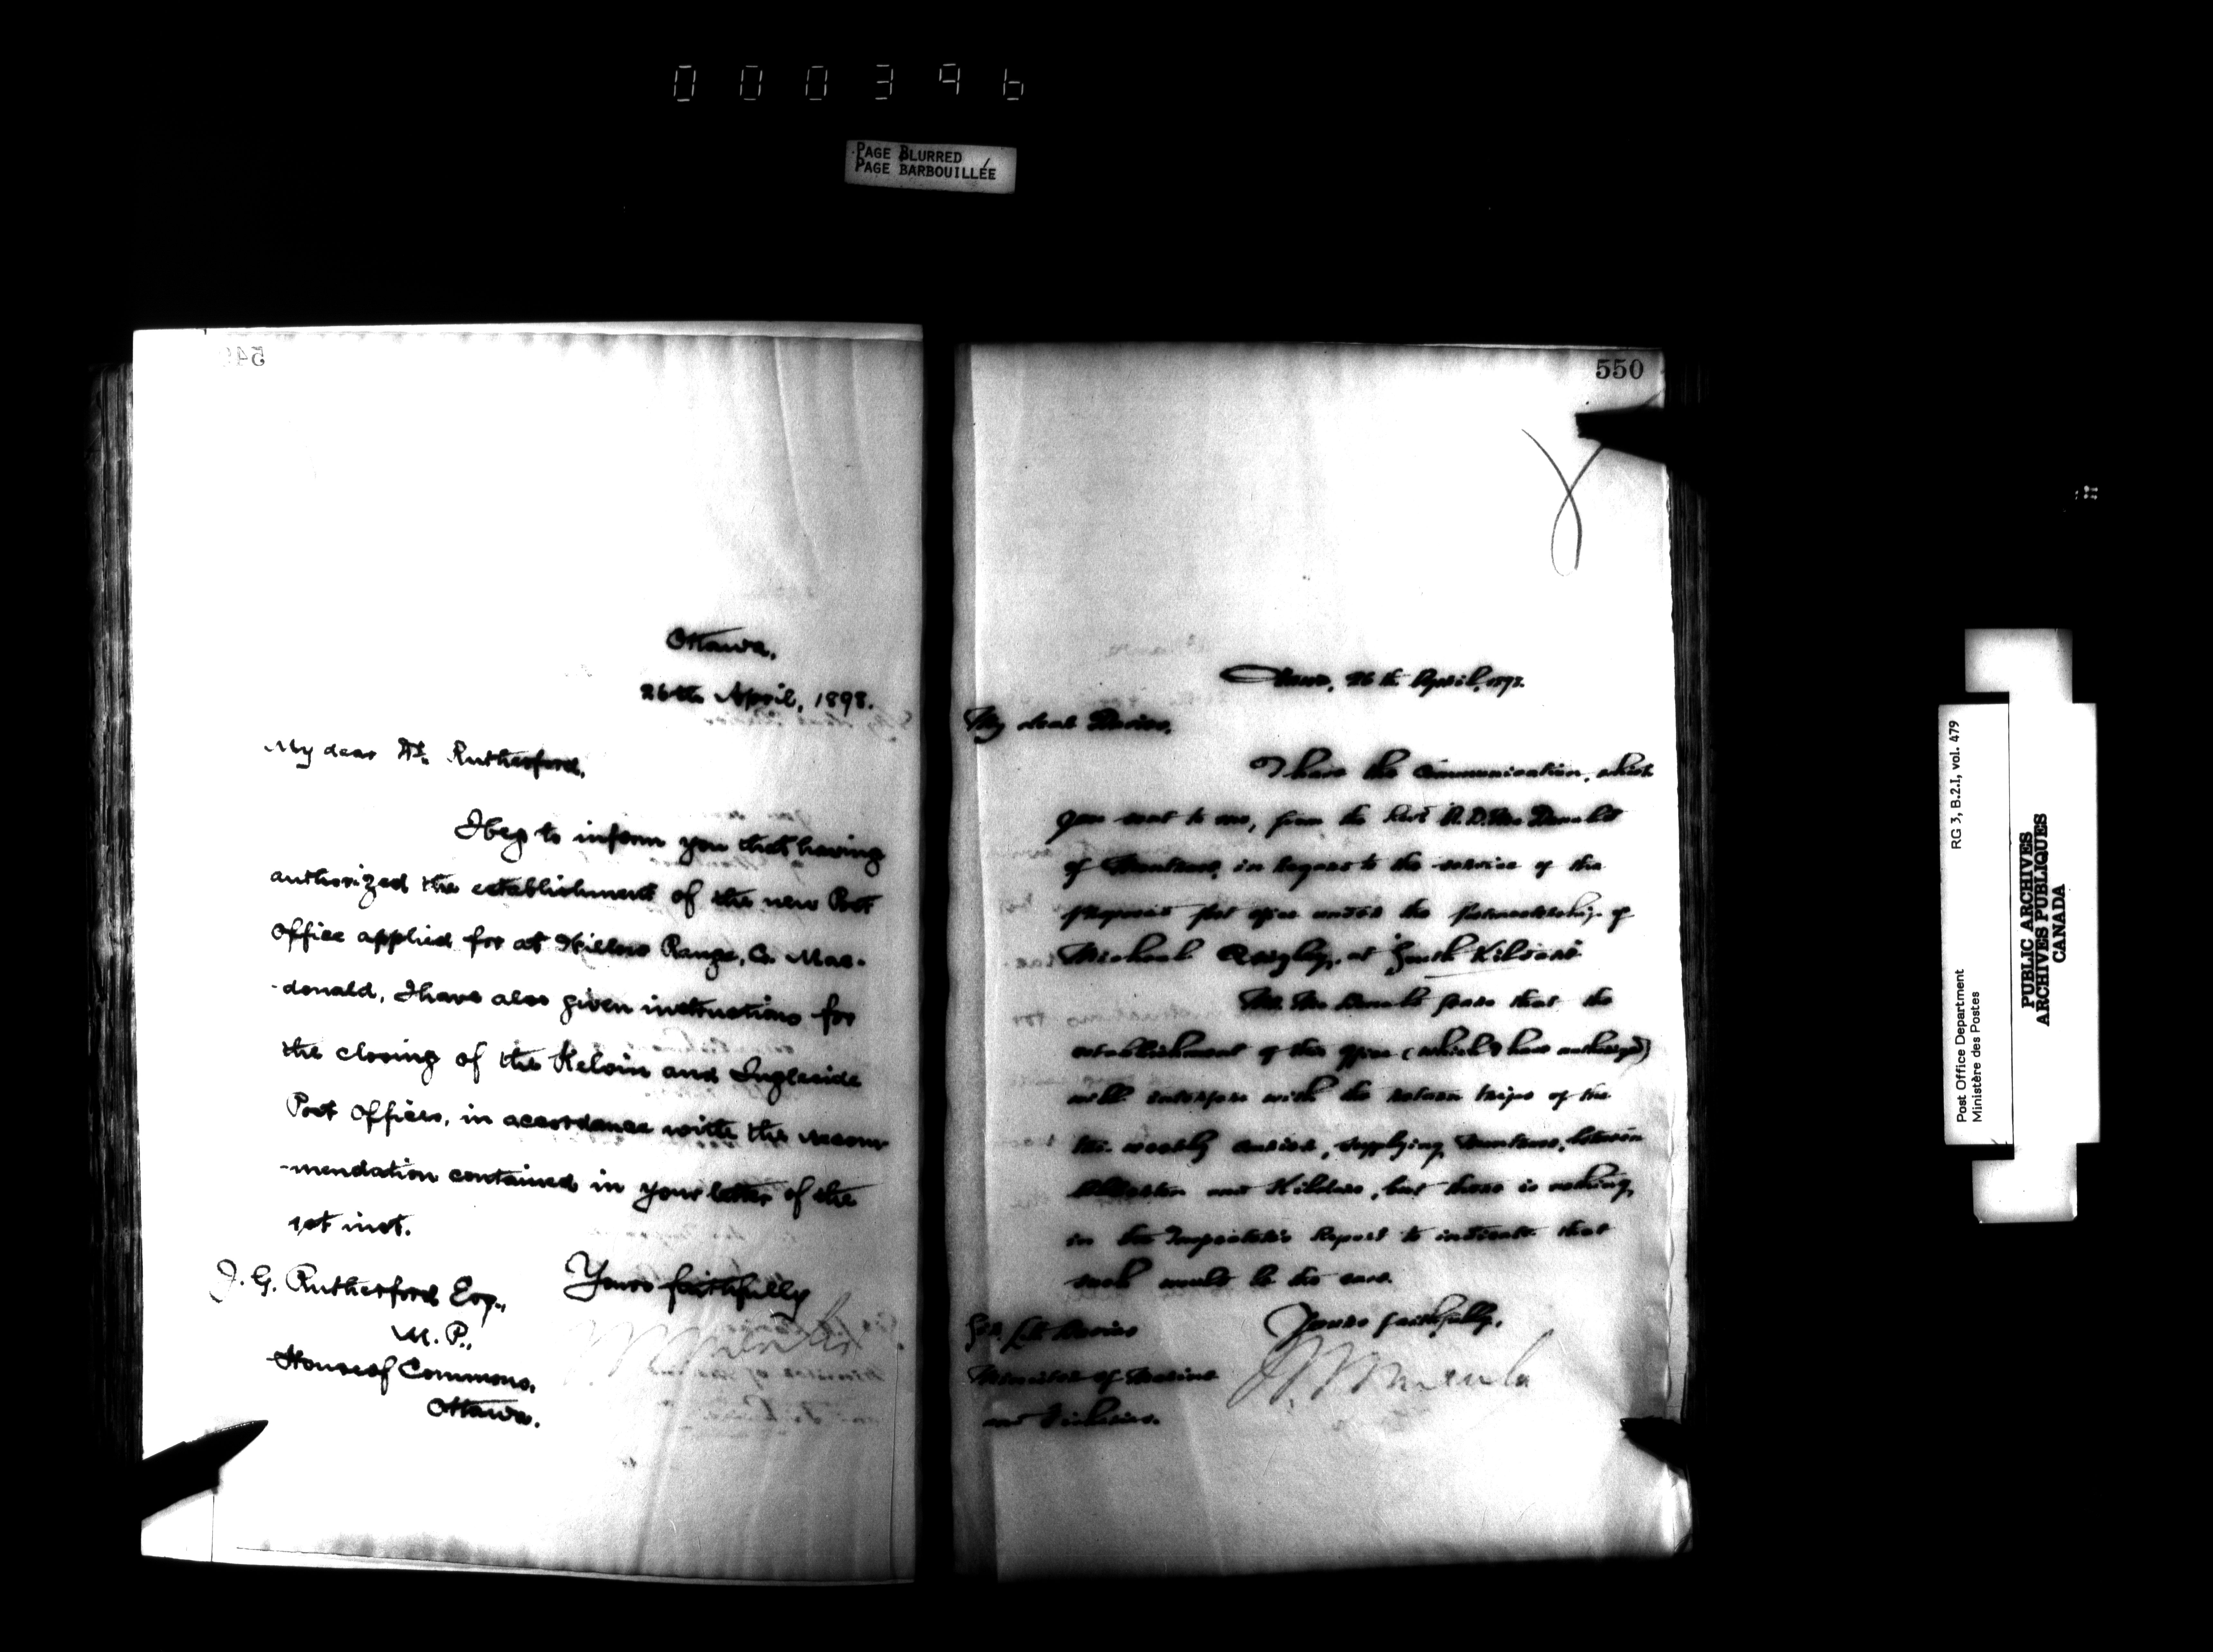 000396
PAGE BLURRED
PAGE BARBOUILLÉE
Ottawa,
26th April, 1898.
My dear Dr. Rutherford,
I beg to inform you that having
authorized the establishment of the new Post
Office applied for at Range, Co. Mac-
-donald, I have also given instructions for
the closing of the Kelvin and Ingleside
Post Offices, in accordance with the recom
-mendation contained in your letter of the
1st inst.
Yours faithfully
J. G. Rutherford Esq.,
M. P.,
House of Commons,
Ottawa.
550
26th April, 1898.
My dear Davies,
I have the communication, which
you sent to me, from the R. D. McDonald
of in regard to the service of the
proposed post office under the postmastership of
Michael Quigley, at South Kildare.
Mr. McDonald fears that the
establishment of this office (which I have authorized)
will interfere with the return trips of the
weekly service, supplying between
and Kildare, but there is nothing
in the Inspector's Report to indicate that
such would be the case.
Yours faithfully,
Sir L. H. Davies
Minister of Marine
and Fisheries.
Post Office Department
Ministère des Postes
RG 3, B.2.I, vol. 479
PUBLIC ARCHIVES
ARCHIVES PUBLIQUES
CANADA